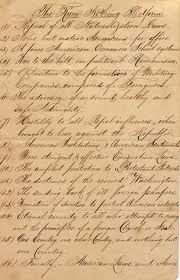 The Know Nothing Platform
1 Repeal of all Naturalization Laws
2 None but native Americans for office
3 A pure American Common School system
4 War to the hilt, on political Romanism
5 Opposition to the formation of Military
Companies, composed of Foreigners
6 The advocacy of a sound, healthy and
safe Nationality
7 Hostility to all Papal influences, when
brought to bear against the Republic
American Institutions & American Sentiments
More stringent & effective Emigration Laws
The amplest protection to Protestant Interests
The sending back of all foreign paupers
Formation of societies to protect American interests
Eternal enmity to all who attempt to carry
out the principles of a foreign Church or State
Our Country, our whole Country, and nothing but
our Country
Finally, American Laws and